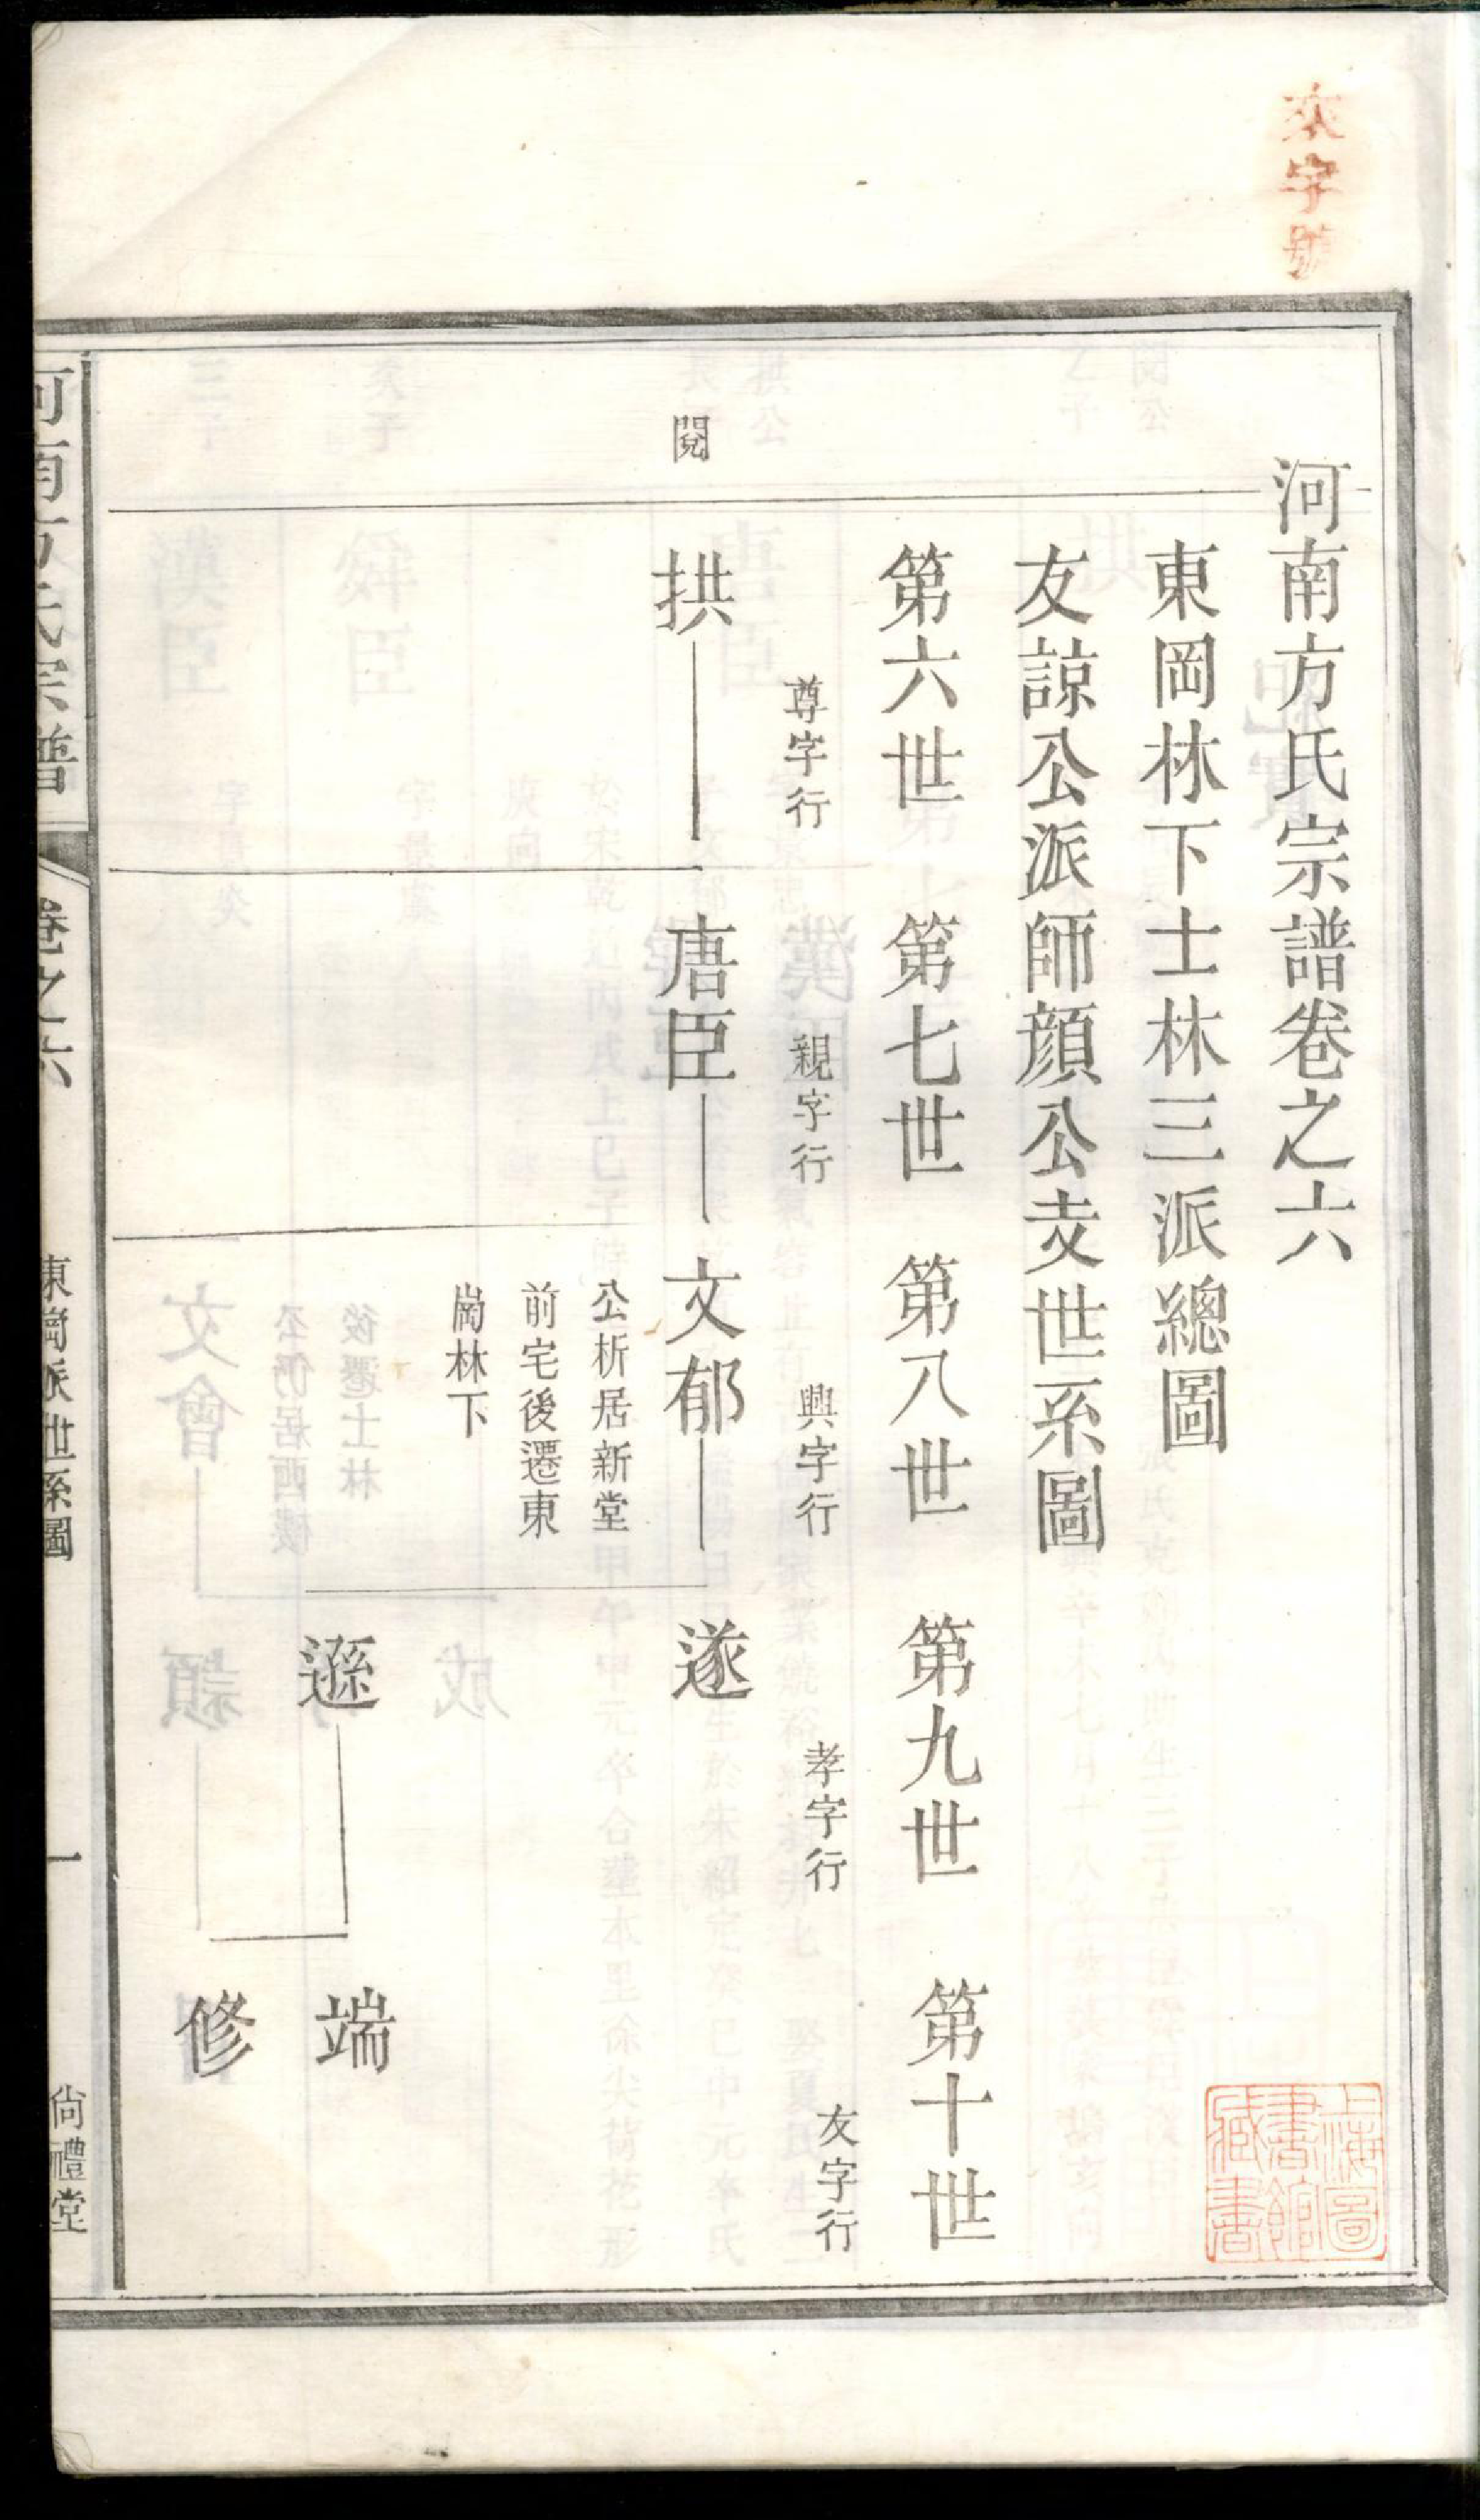 來字號
河南方氏宗譜卷之六
東岡林下士林三派總圖
友諒公派師顏公支世系圖
第六世 第七世 第八世 第九世 第十世
尊字行 親字行 興字行 孝字行 友字行
閱
拱 唐臣 文郁 遂
公析居新堂
前宅後遷東
崗林下
遜 端
修
河南方氏宗譜 卷之六 東崗派世系圖 一 尙禮堂
上海圖
書館
藏書